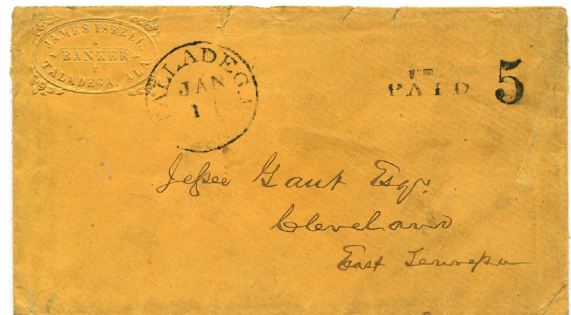 JAMES ISBELL
BANKER
TALADEGA, ALA
TALLADEGA
JAN
PAID 5
Jessee Gaut Esqr.
Cleveland
East Tennessee